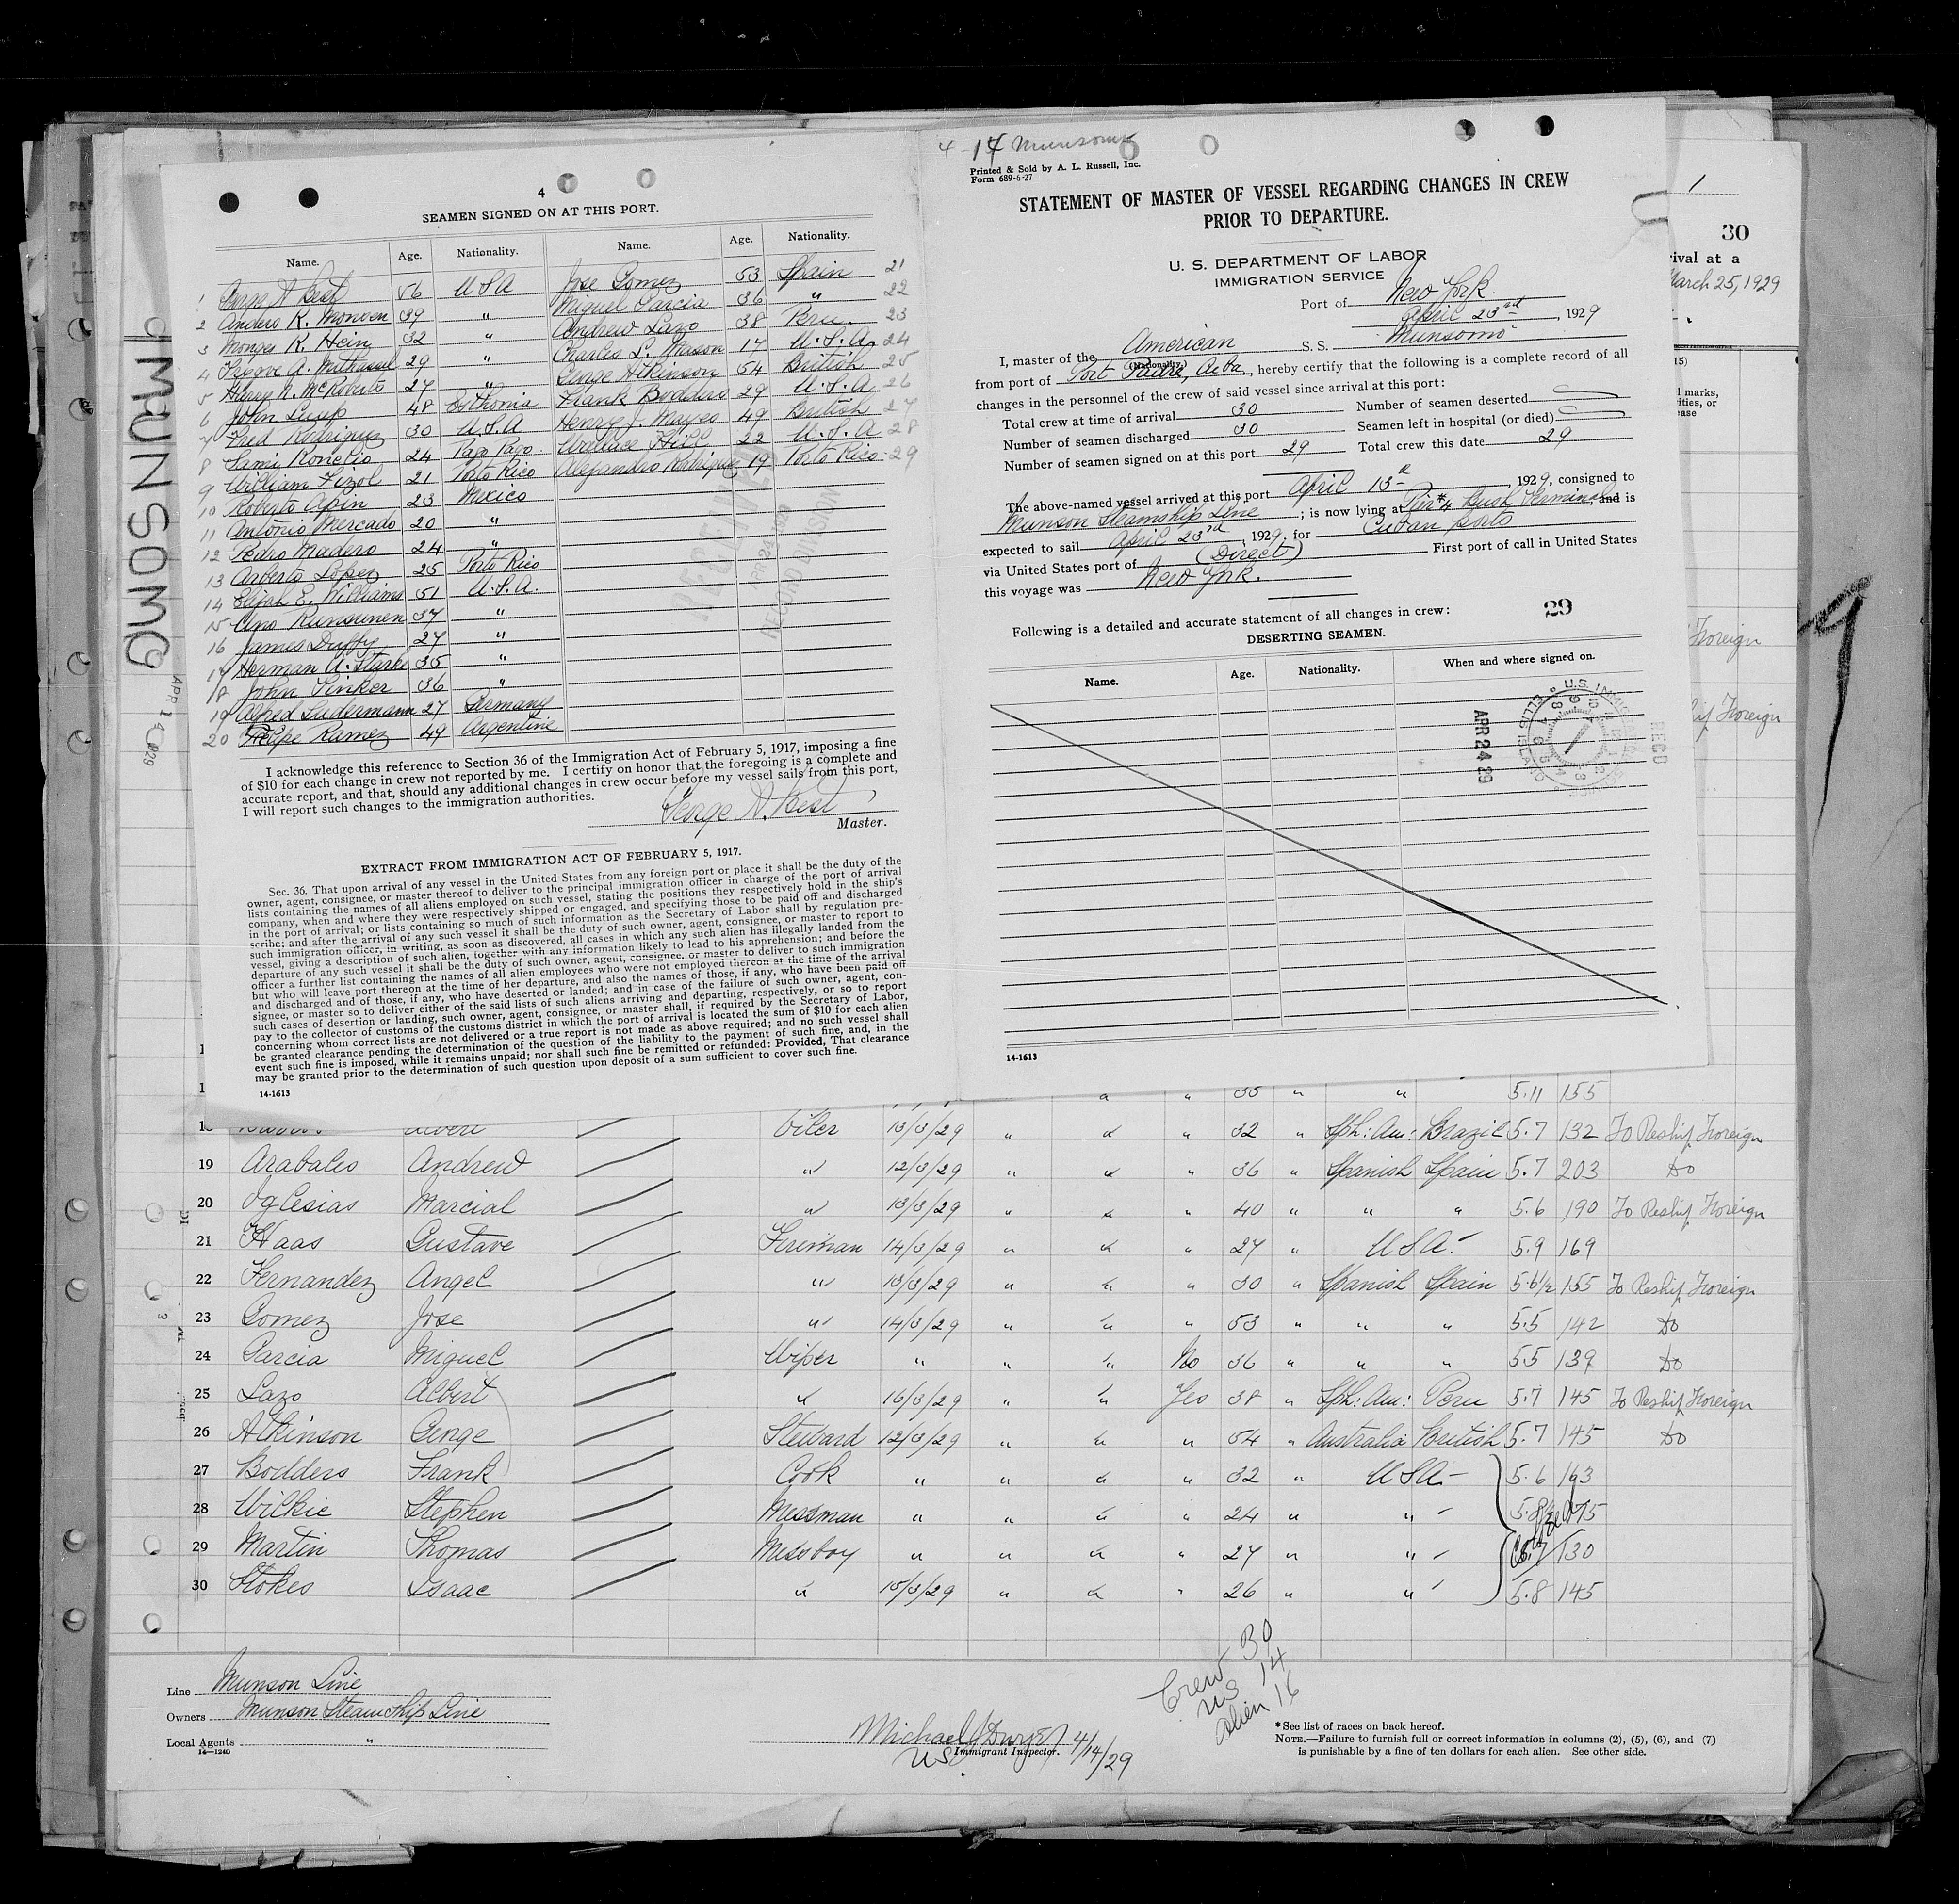 4-14 Munsomo
4
SEAMEN SIGNED ON AT THIS PORT.
Name. Age. Nationality. Name. Age. Nationality.
1 George A. Best 56 USA Jose Gomez 53 Spain 21
2 Anders K. Monven 39 " Miguel Garcia 36 " 22
3 K. Hein 32 " Andrew Lazo 38 Peru 23
4 A. 29 " Charles L. Mason 17 U.S.A. 24
5 Harry N. McRoberts 27 " George Atkinson 54 British 25
6 John 48 Esthonia Frank Bodders 29 U.S.A. 26
7 Fred Rodriguez 30 U.S.A Henry J. Mayes 49 British 27
8 Sami 24 Pago Pago Wallace Hill 22 U.S.A 28
9 William 21 Porto Rico Alejandro Rodriguez 19 Porto Rico 29
10 Roberto 23 Mexico
11 Antonio Mercado 20 "
12 Pedro Madero 24 "
13 Arberto Lopez 25 Porto Rico
14 Elijah E. Williams 51 U.S.A.
15 37 "
16 James Duffy 27 "
17 Herman A. Starke 35 "
18 John Pinker 36 "
19 Alfred Ludermann 27 Germany
20 Felipe Ramez 49 Argentine
RECEIVED
APR 24 1929
RECORD DIVISION
I acknowledge this reference to Section 36 of the Immigration Act of February 5, 1917, imposing a fine
of $10 for each change in crew not reported by me. I certify on honor that the foregoing is a complete and
accurate report, and that, should any additional changes in crew occur before my vessel sails from this port,
I will report such changes to the immigration authorities.
George A. Best
Master.
EXTRACT FROM IMMIGRATION ACT OF FEBRUARY 5, 1917.
Sec. 36. That upon arrival of any vessel in the United States from any foreign port or place it shall be the duty of the
owner, agent, consignee, or master thereof to deliver to the principal immigration officer in charge of the port of arrival
lists containing the names of all aliens employed on such vessel, stating the positions they respectively hold in the ship's
company, when and where they were respectively shipped or engaged, and specifying those to be paid off and discharged
in the port of arrival; or lists containing so much of such information as the Secretary of Labor shall by regulation pre-
scribe; and after the arrival of any such vessel it shall be the duty of such owner, agent, consignee, or master to report to
such immigration officer, in writing, as soon as discovered, all cases in which any such alien has illegally landed from the
vessel, giving a description of such alien, together with any information likely to lead to his apprehension; and before the
departure of any such vessel it shall be the duty of such owner, agent, consignee, or master to deliver to such immigration
officer a further list containing the names of all alien employees who were not employed thereon at the time of the arrival
but who will leave port thereon at the time of her departure, and also the names of those, if any, who have been paid off
and discharged and of those, if any, who have deserted or landed; and in case of the failure of such owner, agent, con-
signee, or master so to deliver either of the said lists of such aliens arriving and departing, respectively, or so to report
such cases of desertion or landing, such owner, agent, consignee, or master shall, if required by the Secretary of Labor,
pay to the collector of customs of the customs district in which the port of arrival is located the sum of $10 for each alien
concerning whom correct lists are not delivered or a true report is not made as above required; and no such vessel shall
be granted clearance pending the determination of the question of the liability to the payment of such fine, and, in the
event such fine is imposed, while it remains unpaid; nor shall such fine be remitted or refunded: Provided, That clearance
may be granted prior to the determination of such question upon deposit of a sum sufficient to cover such fine.
14-1613
MUNSOMO
APR 14 1929
Printed & Sold by A. L. Russell, Inc.
Form 689-6-27
STATEMENT OF MASTER OF VESSEL REGARDING CHANGES IN CREW
PRIOR TO DEPARTURE.
U. S. DEPARTMENT OF LABOR
IMMIGRATION SERVICE
Port of New York
April 23rd, 1929
I, master of the American S. S. Munsomo
(Nationality)
from port of Port Padre, Cuba, hereby certify that the following is a complete record of all
changes in the personnel of the crew of said vessel since arrival at this port:
Total crew at time of arrival 30 Number of seamen deserted
Number of seamen discharged 30 Seamen left in hospital (or died)
Number of seamen signed on at this port 29 Total crew this date 29
The above-named vessel arrived at this port April 13th, 1929, consigned to
Munson Steamship Line; is now lying at Pier #4 Bush Terminal, and is
expected to sail April 23rd, 1929, for Cuban ports
via United States port of (Direct) First port of call in United States
this voyage was New York.
Following is a detailed and accurate statement of all changes in crew: 29
DESERTING SEAMEN.
Name. Age. Nationality. When and where signed on.
APR 24 29
U.S. IMMIGRATION SERVICE ELLIS ISLAND
REC'D
14-1613
1
30
rival at a
March 25, 1929
15)
l marks,
ities, or
ease
Foreign
Foreign
35 " " 5.11 155
18 Albert Oiler 13/3/29 " " " 32 " Sph: Am: Brazil 5.7 132 To Reship Foreign
19 Arabales Andrew " 12/3/29 " " " 36 " Spanish Spain 5.7 203 Do
20 Iglesias Marcial " 13/3/29 " " " 40 " " " 5.6 190 To Reship Foreign
21 Haas Gustave Fireman 14/3/29 " " " 27 " USA 5.9 169
22 Fernandez Angel " 13/3/29 " " " 30 " Spanish Spain 5.6½ 155 To Reship Foreign
23 Gomez Jose " 14/3/29 " " " 53 " " " 5.5 142 Do
24 Garcia Miguel Wiper " " " No 36 " " " 5.5 139 Do
25 Lazo Albert " 16/3/29 " " Yes 38 " Sph: Am: Peru 5.7 145 To Reship Foreign
26 Atkinson George Steward 12/3/29 " " " 54 " Australia British 5.7 145 Do
27 Bodders Frank Cook " " " " 32 " USA 5.6 163
28 Wilkie Stephen Messman " " " " 24 " " 5.8½ 175
29 Martin Thomas Messboy " " " " 27 " " 130
30 Stokes Isaac " 15/3/29 " " " 26 " " 5.8 145
Crew 30
US 14
Alien 16
Line Munson Line
Owners Munson Steam Ship Line
Local Agents "
14-1240
Michael J Dwyer 4/14/29
US Immigrant Inspector.
*See list of races on back hereof.
NOTE.—Failure to furnish full or correct information in columns (2), (5), (6), and (7)
is punishable by a fine of ten dollars for each alien. See other side.